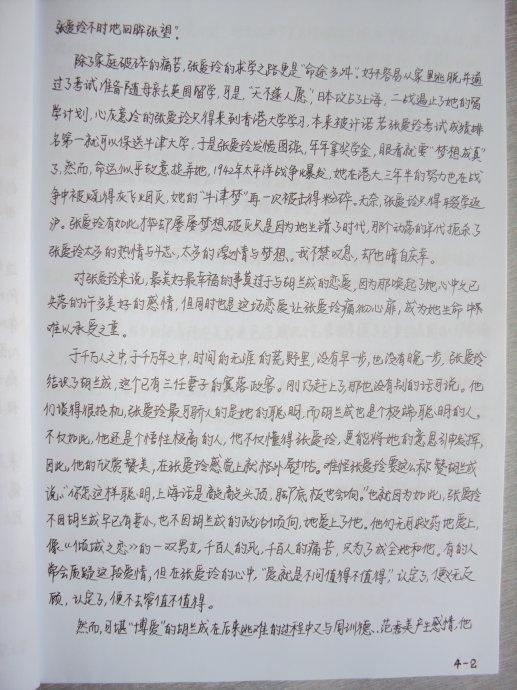 张爱玲不时地回眸张望”。
除了家庭破碎的痛苦，张爱玲的求学之路更是“命途多舛”。好不容易从家里逃脱，并通
过了考试准备随母亲去英国留学，可是，“天不遂人愿”，日本攻占上海，二战遏止了她的留
学计划，心灰意冷的张爱玲只得来到香港大学学习，本来被许诺若张爱玲考试成绩排
名第一就可以保送牛津大学，于是张爱玲发愤图强，年年拿奖学金，眼看就要“梦想成真”
了，然而，命运似乎故意捉弄她，1942年太平洋战争爆发，她在港大三年半的努力也在战
争中被烧得灰飞烟灭，她的“牛津梦”再一次被击得粉碎。无奈，张爱玲只得辍学返
沪。张爱玲有如此才华却屡屡梦想破灭只是因为她生错了时代，那个动荡的年代扼杀了
张爱玲太多的热情与斗志，太多的激情与梦想。我不禁叹息，却也暗自庆幸。
对张爱玲来说，最美好最幸福的事莫过于与胡兰成的恋爱，因为那唤起了她心中久已
失落的许多美好的感情，但同时也是这场恋爱让张爱玲痛彻心扉，成为她生命中
难以承受之重。
于千万人之中，于千万年之中，时间的无涯的荒野里，没有早一步，也没有晚一步，张爱玲
结识了胡兰成，这个已有三任妻子的落政客。刚巧赶上了，那也没有别的话可说。他
们谈得很投机，张爱玲最可骄人的是她的聪明，而胡兰成也是个极端聪明的人。
不仅如此，他还是个悟性极高的人，他不仅懂得张爱玲，更能将她的意思引申发挥，
因此，他的欣赏赞美，在张爱玲感觉上就格外熨帖。难怪张爱玲要这么称赞胡兰成
说，“你怎这样聪明，上海话是敲敲头顶，脚底板也会响。”也就因为如此，张爱玲
不因胡兰成早已有妻小，也不因胡兰成的政治倾向，地爱上了他。他们无可救药地爱上，
像《倾城之恋》的一双男女，千百人的死，千百人的痛苦，只为了成全她和他，有的人
常会质疑这段爱情，但在张爱玲的心中，“爱就是不问值得不值得”，认定了，便义无反
顾，认定了，便不去管值不值得。
然而，可堪“博爱”的胡兰成在后来逃难的过程中又与周训德、范秀美产生感情，他
4-2